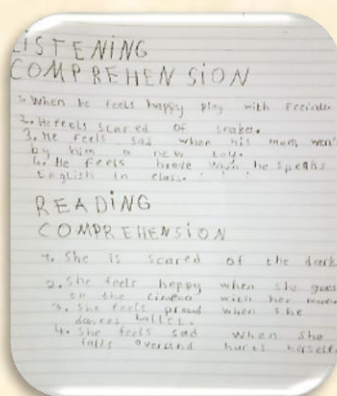 LiSTENiNG
COMPREHENSiON
1. When he feels happy play with Freinds.
2. He feels scared of snakes.
3. He feels sad when his mum won't
by him a new toy.
4. He feels brave when he speaks
English in class.
READiNG
COMPREHENSiON
1. She is scared of the dark
2. She feels happy when she goes
to the cinema with her
3. She feels proud when she
dances ballet.
4. She feels sad when she
falls over and hurts herself.